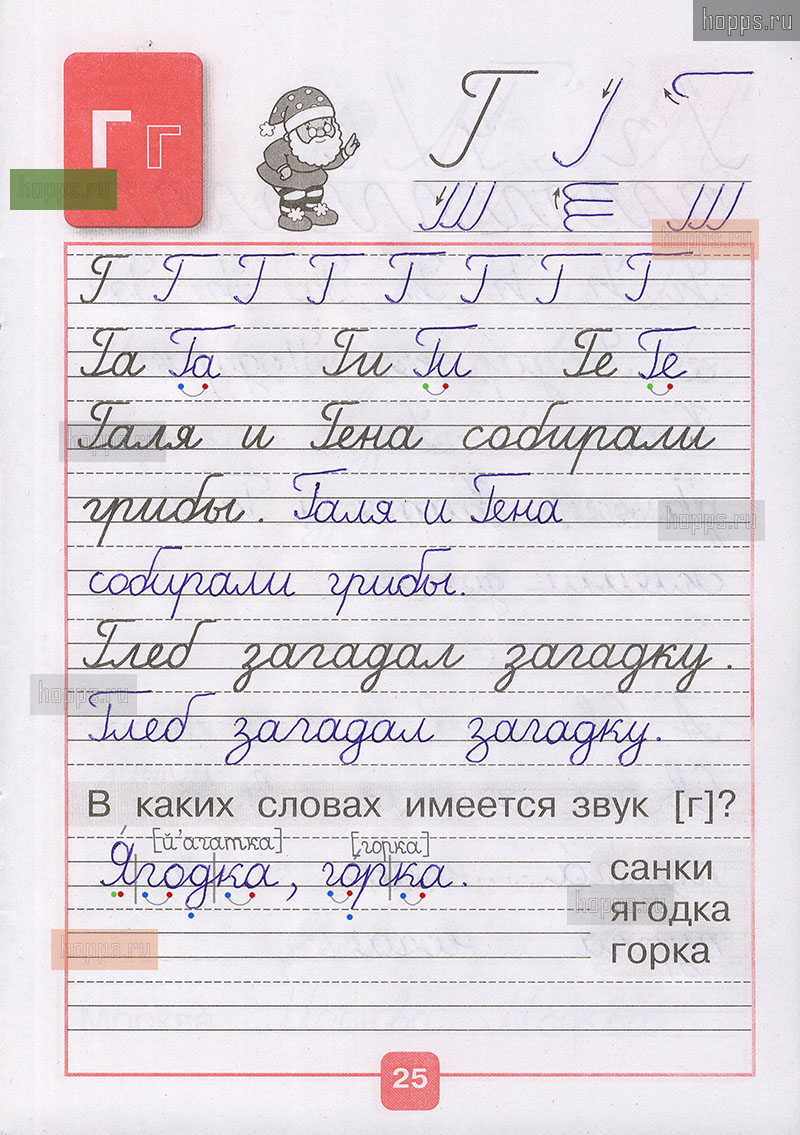 hopps.ru
Г г
Г
hopps.ru
hopps.ru
Г Г Г Г Г Г Г Г
Га Га Ги Ги Ге Ге
Галя и Гена собирали
hopps.ru
грибы. Галя и Гена
hopps.ru
собирали грибы.
Глеб загадал загадку.
hopps.ru
Глеб загадал загадку.
В каких словах имеется звук [г]?
[й'агатка] [горка]
Я́годка, го́рка.
санки
hopps.ru
ягодка
hopps.ru
горка
25